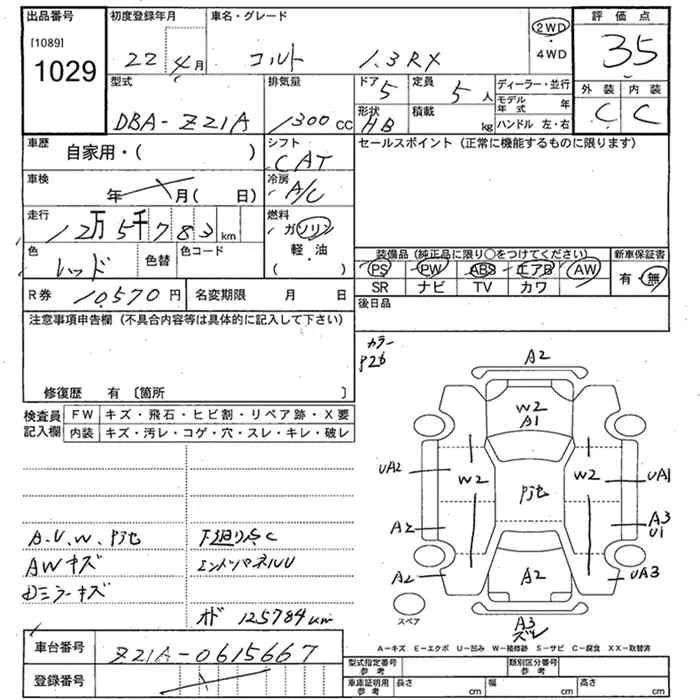 出品番号
[1089]
1029
初度登録年月
22年4月
車名・グレード
コルト 1.3RX
2WD
・
4WD
評価点
3.5
外装 内装
C C
型式
DBA-Z21A
排気量
1300cc
ドア
5
形状
HB
定員
5人
積載
kg
ディーラー・並行
モデル年式 年
ハンドル 左・右
車歴
自家用・( )
シフト
CAT
車検
年 月( 日)
冷房
A/C
走行
12万5千783km
燃料
ガソリン
軽・油
( )
色
レッド
色替
色コード
R券
10,570円
名変期限 月 日
セールスポイント (正常に機能するものに限ります)
装備品 (純正品に限り○をつけてください)
PS PW ABS エアB AW
SR ナビ TV カワ
新車保証書
有・無
後日品
注意事項申告欄 (不具合内容等は具体的に記入して下さい)
修復歴 有〔箇所 〕
検査員記入欄
FW キズ・飛石・ヒビ割・リペア跡・X要
内装 キズ・汚レ・コゲ・穴・スレ・キレ・破レ
A.U.W.
AWキズ
Dミラーキズ
下廻り C
オド 125784km
カラー
P26
A2
W2
A1
UA2
W2
W2
UA1
A2
A3
U1
A2
A2
UA3
スペア
A3
ズレ
A-キズ E-エクボ U-凹み W-補修跡 S-サビ C-腐食 XX-取替済
車台番号
Z21A-0615667
登録番号
型式指定番号
参考
類別区分番号
参考
車庫証明用
参考
長さ cm
幅 cm
高さ cm